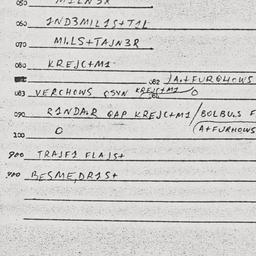 050
060 1ND3MIL1S+T1L
070 MI.LS+TAJN3R
080 KREJC+M1
082 JA+FURQHOWS
083 VERCHOWS QSVN KREJC+M1 / O
090 R1NDA.R QAP KREJC+M1 / BOLBUS F
100 O (A+FURHOWS
900 TRAJF1 FLAJS+
900 BESME,DR1S+